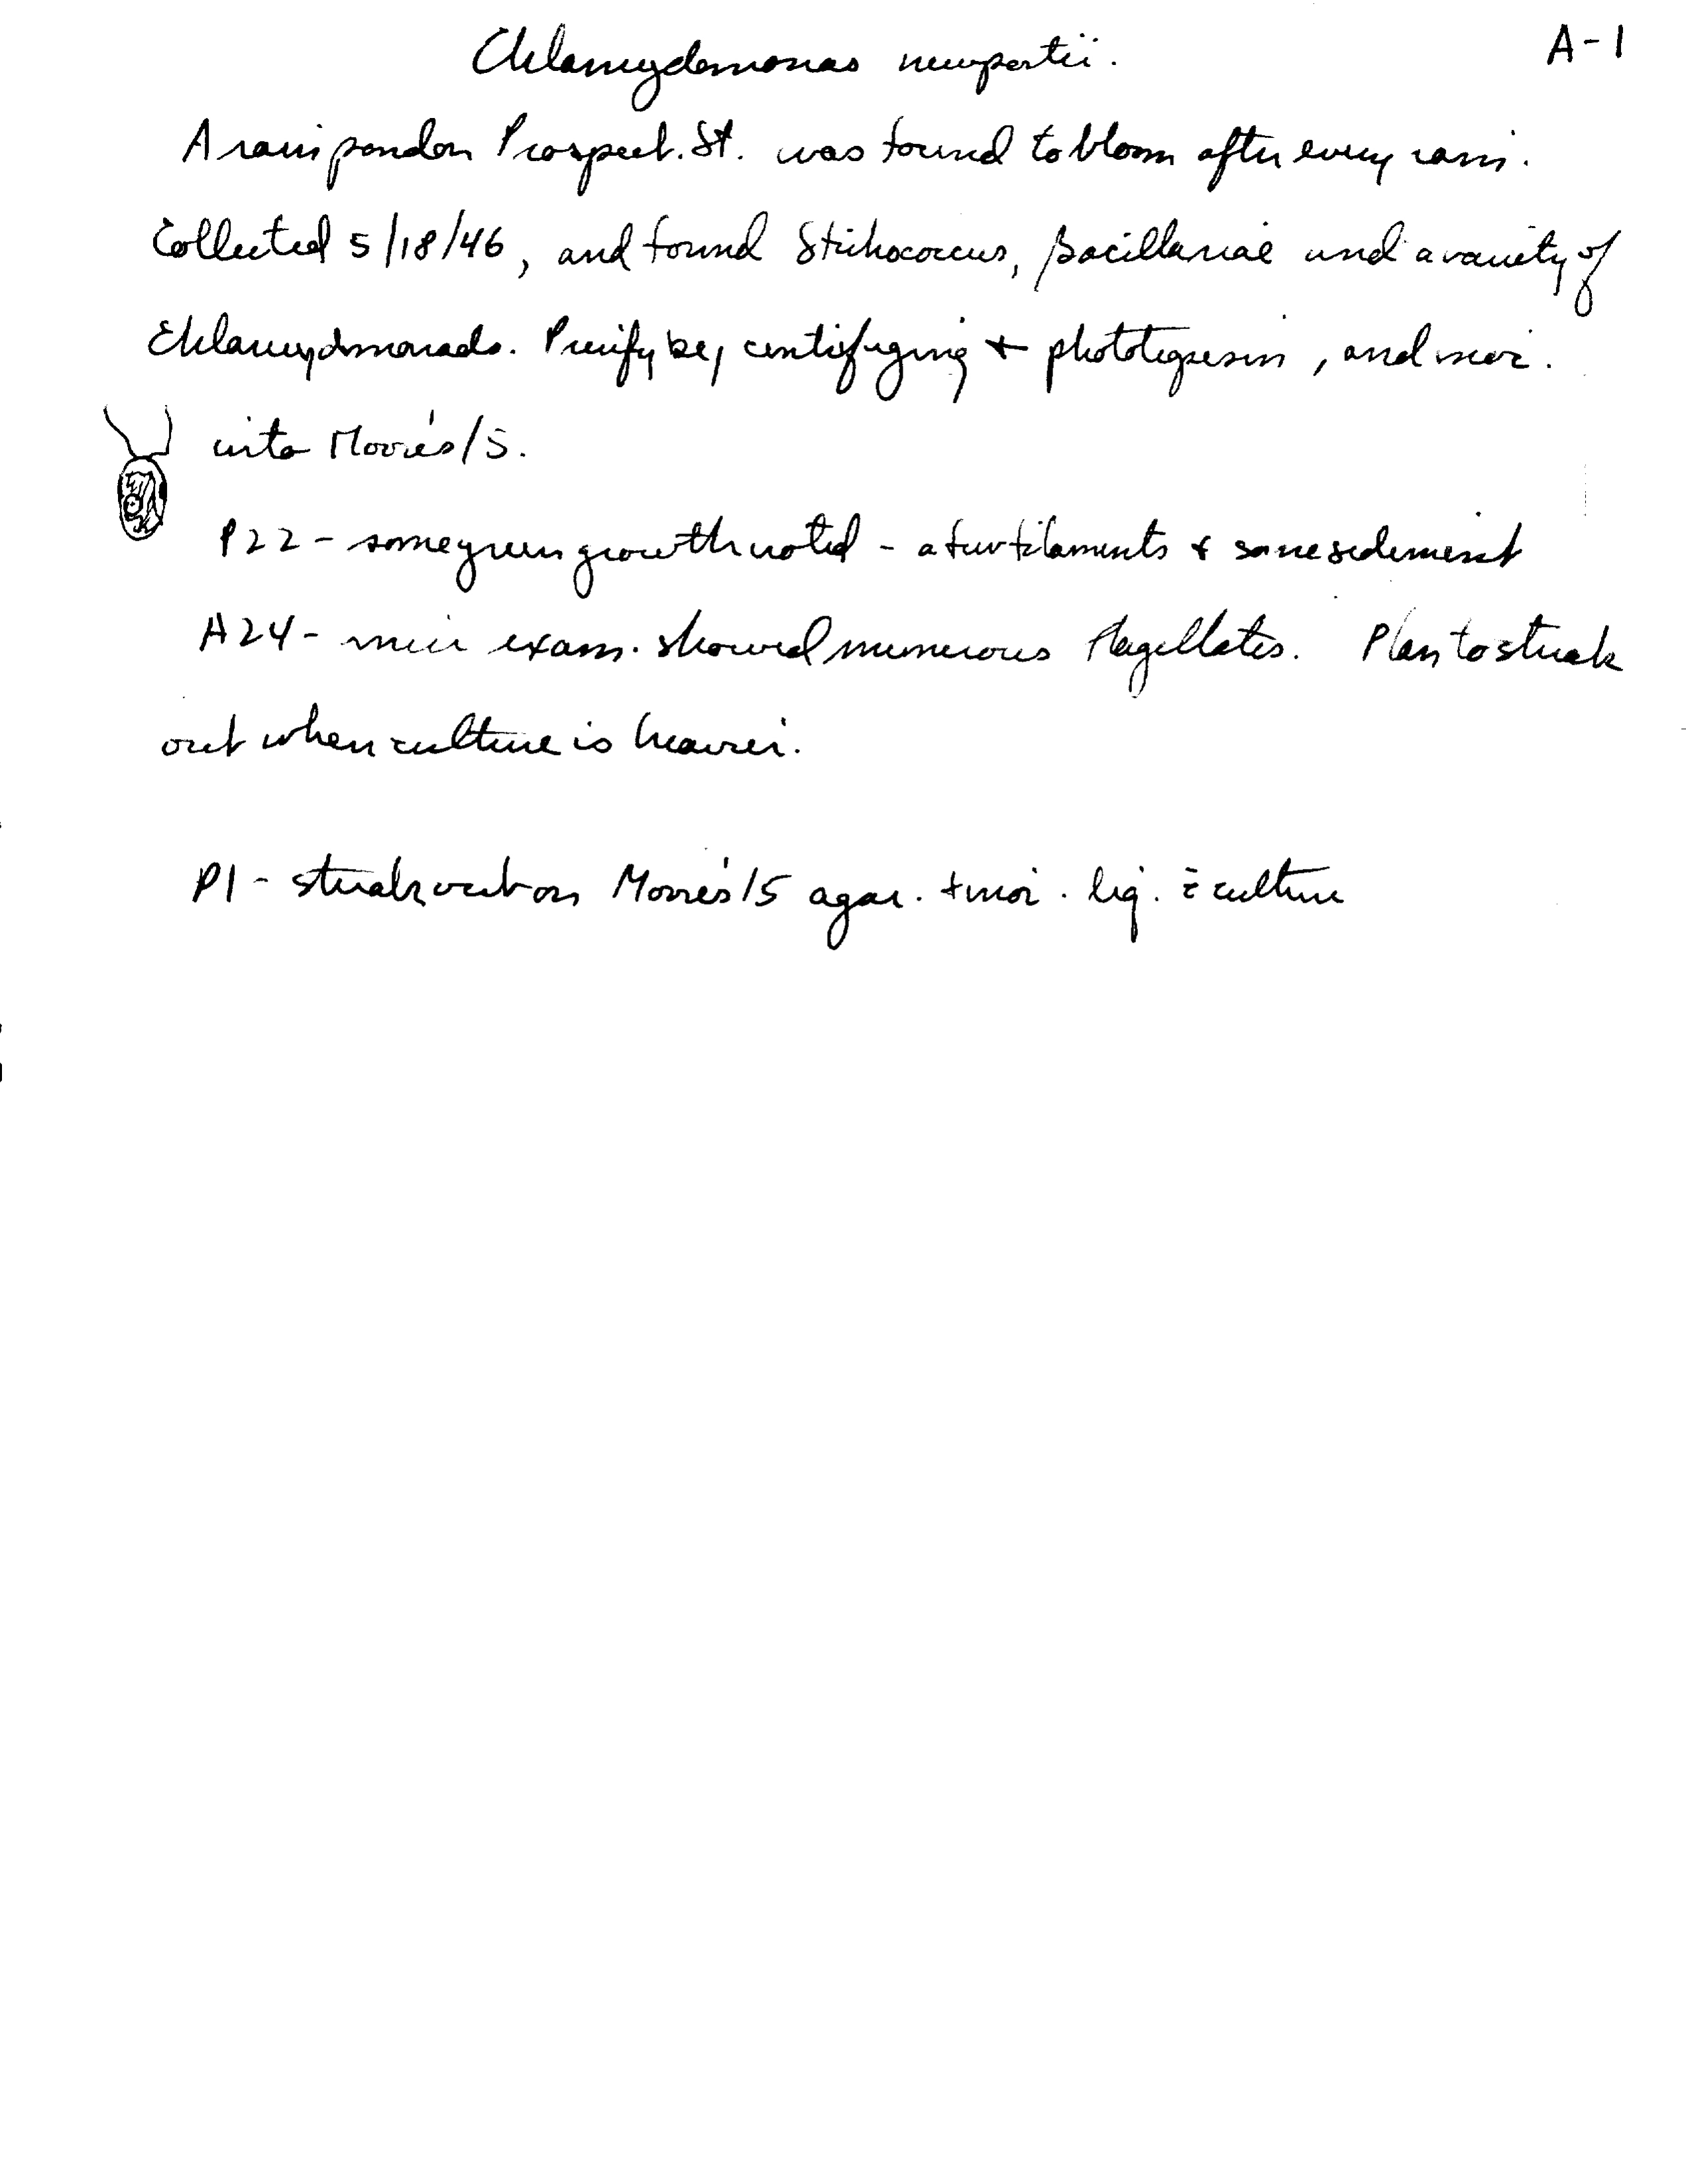 A-1
Chlamydomonas newportii.
A rain pond on Prospect. St. was found to bloom after every rain.
Collected 5/18/46, and found Stichococcus, Bacillariae and a variety of
Chlamydomonads. Purify by centrifuging + phototaxis, and inoc.
into Moore's/5.
P22 - some green growth noted - a few filaments & some sediment
A24 - micr exam. showed numerous flagellates. Plan to streak
out when culture is heavier.
P1 - streak out on Moore's/5 agar. + inoc. liq. c̄ culture